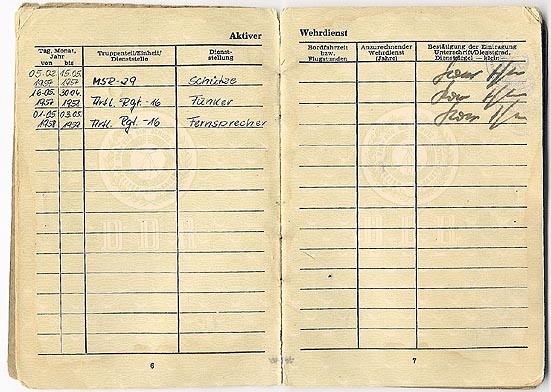 Aktiver
Tag, Monat, Jahr
von bis
Truppenteil/Einheit/
Dienststelle
Dienst-
stellung
05.02. 15.05.
1957 1957
MSR-29
Schütze
16.05. 30.04.
1957 1958
Artl. Rgt.-16
Funker
01.05. 03.05.
1958 1959
Artl. Rgt.-16
Fernsprecher
DDR
6
Wehrdienst
Bordfahrzeit
bzw.
Flugstunden
Anzurechnender
Wehrdienst
(Jahre)
Bestätigung der Eintragung
Unterschrift/Dienstgrad,
Dienstsiegel — klein
DDR
7